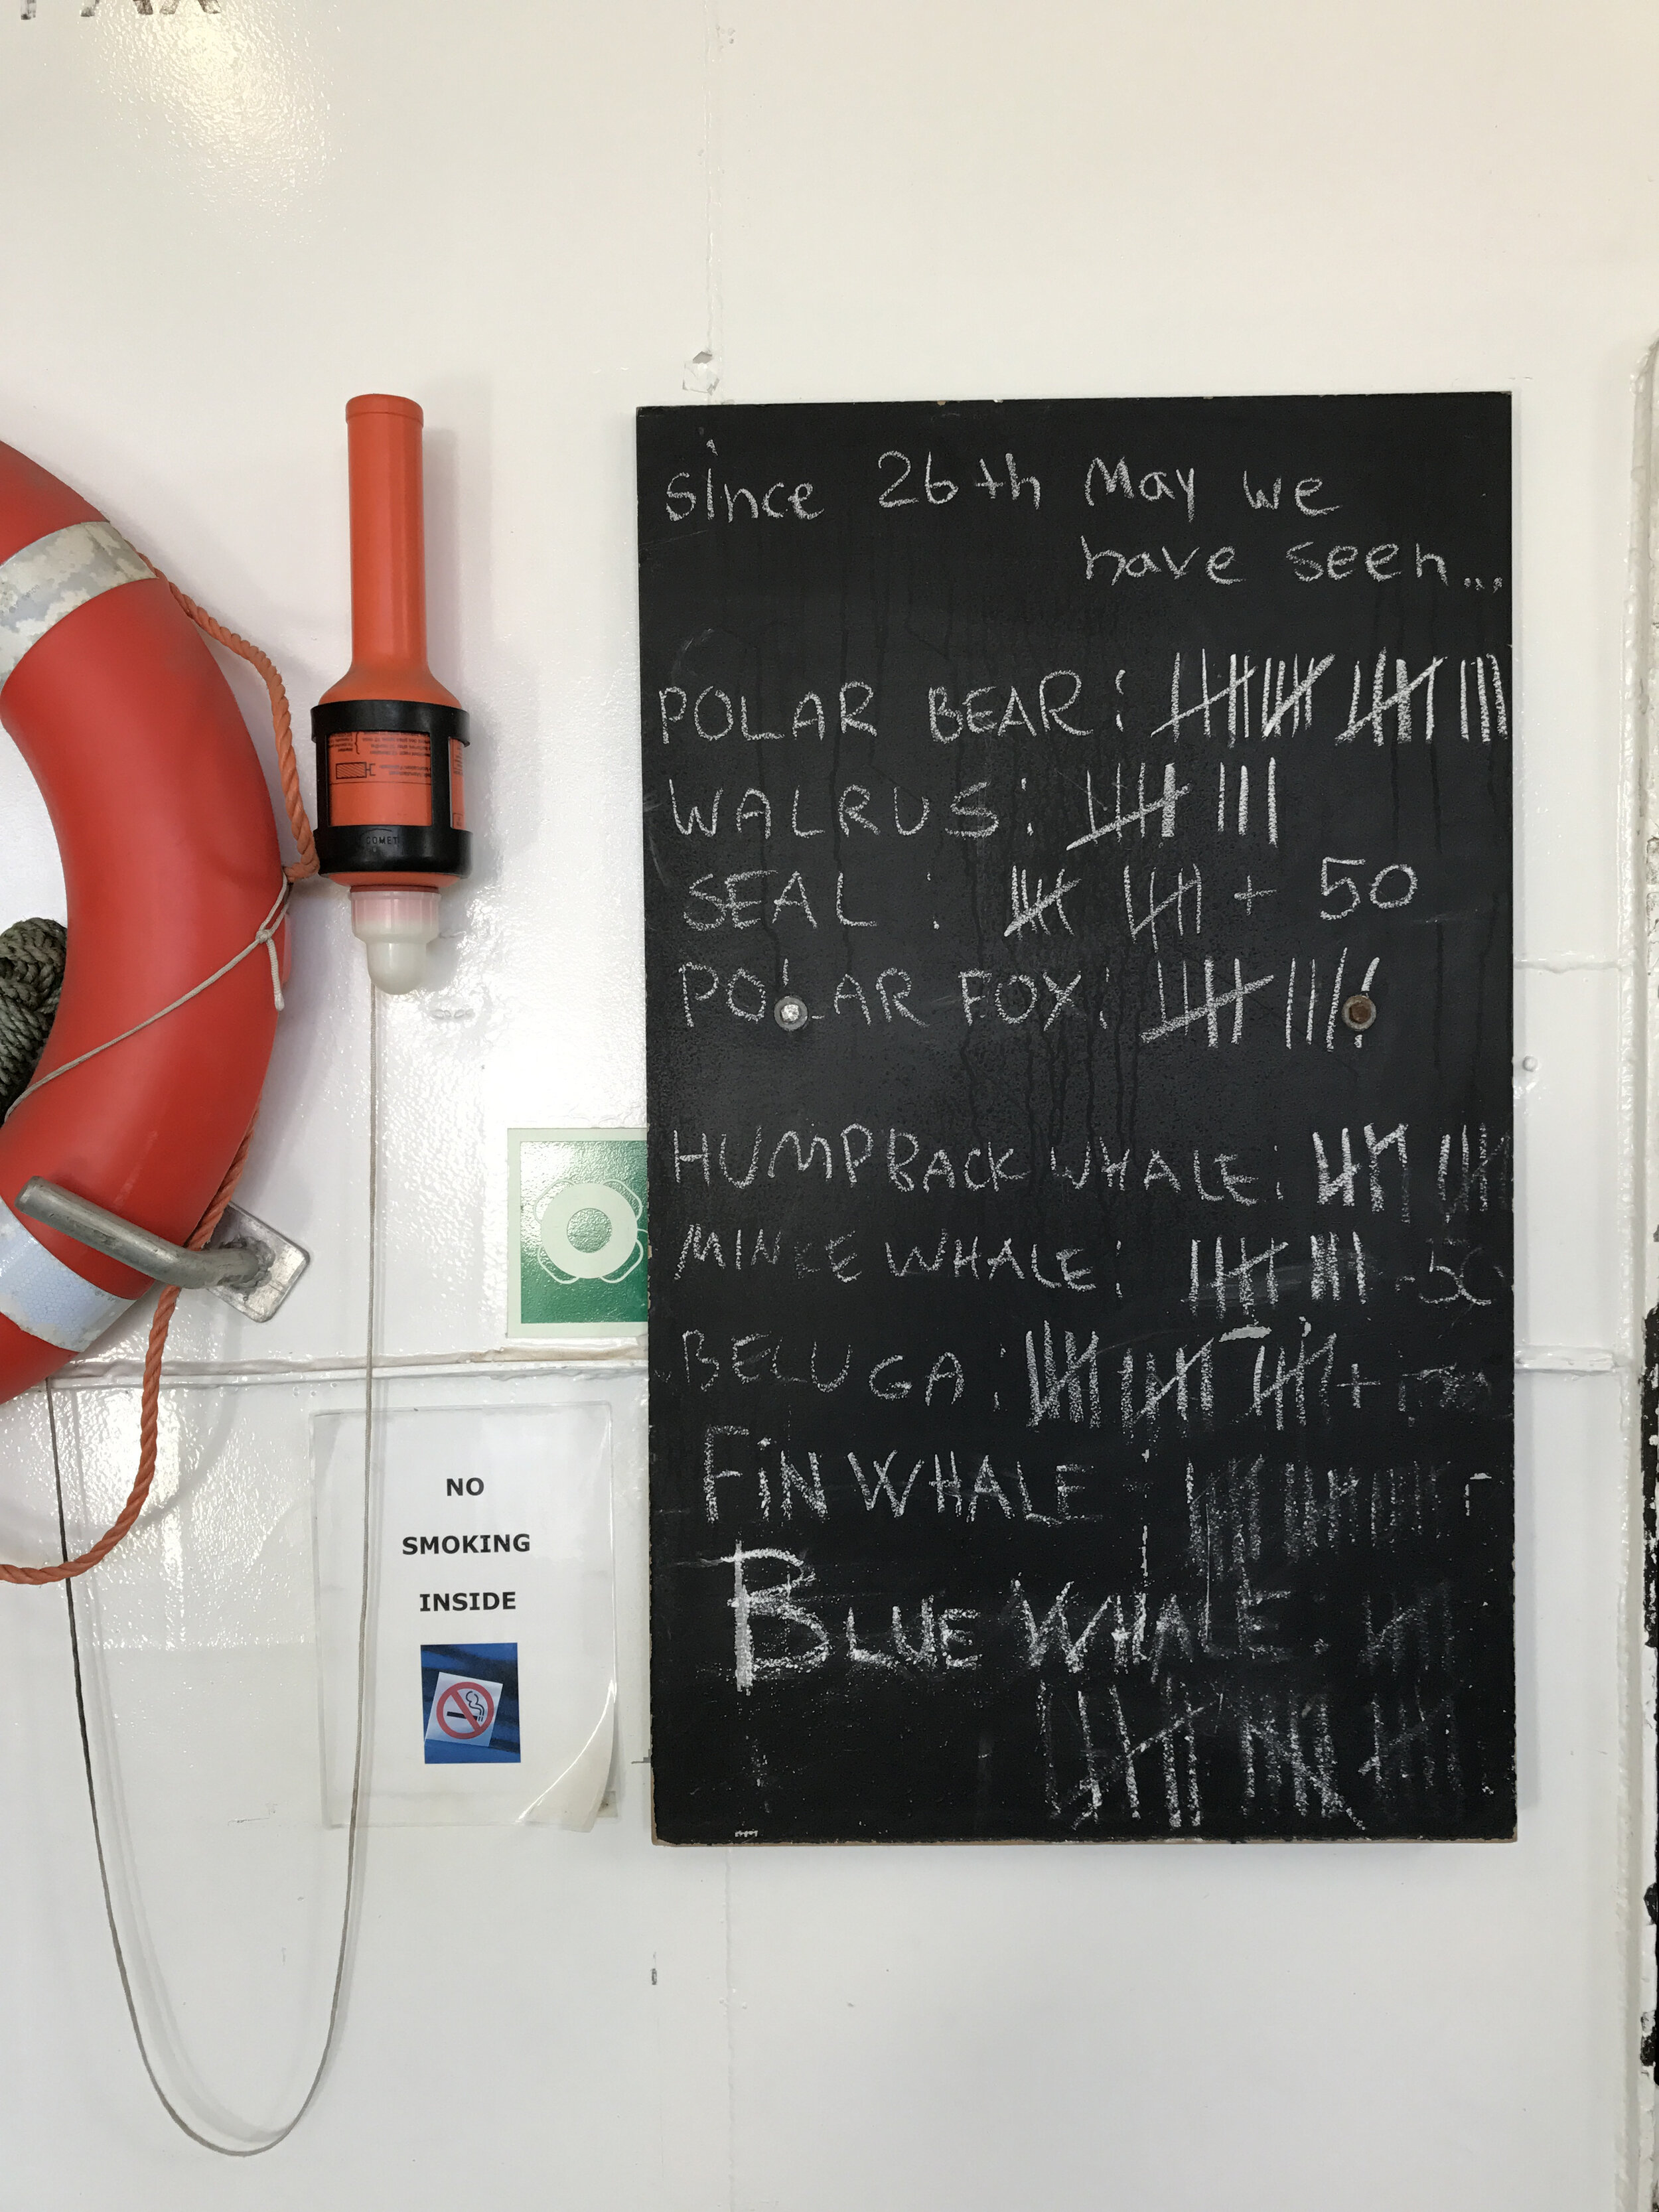 since 26th May we
have seen...
POLAR BEAR:
WALRUS:
SEAL : + 50
POLAR FOX:
HUMPBACK WHALE:
MINKE WHALE:
BELUGA: +
FiN WHALE :
BLUE WHALE:
COMET
NO
SMOKING
INSIDE